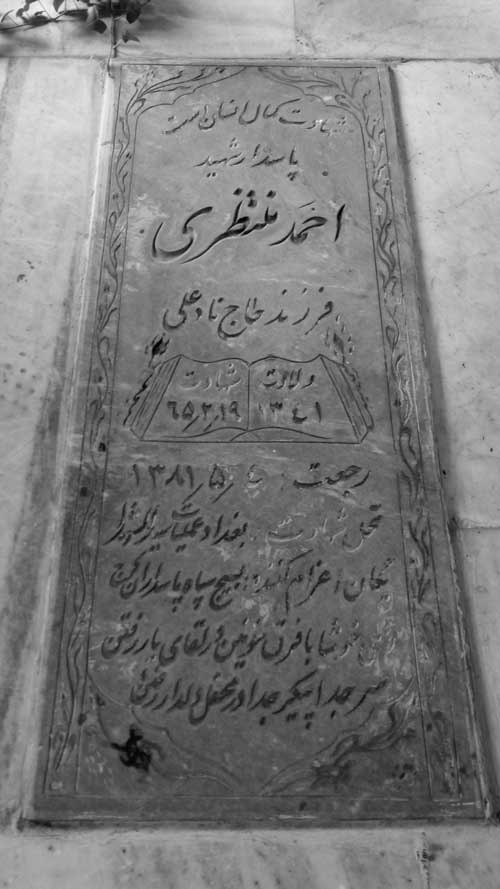 شهادت کمال انسان است
پاسدار شهید
احمد منتظری
فرزند حاج نادعلی
ولادت شهادت
۱۳۴۱ ۶۵٫۲٫۱۹
رجعت : ۴٫۵٫۱۳۸۱
محل شهادت : بغداد عملیات سیدالشهدا
یگان اعزام کننده : بسیج سپاه پاسداران کرج
خوشا با فرق خونین در لقای یار رفتن
سر جدا پیکر جدا در محفل دلدار رفتن